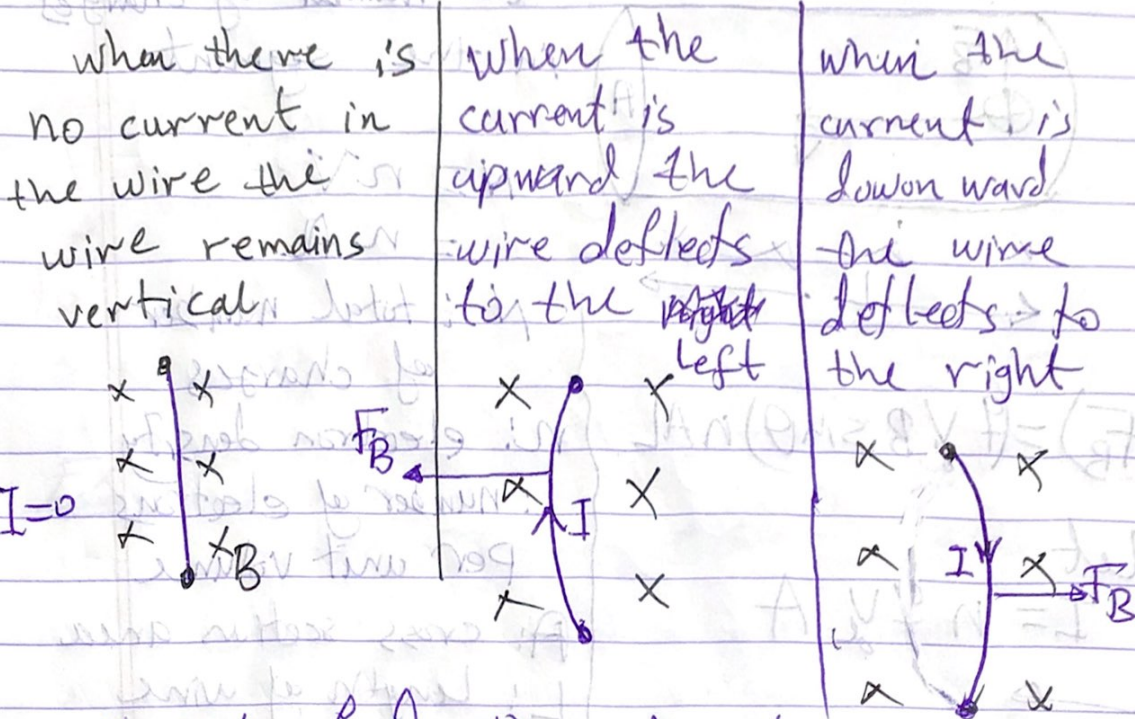 when there is
no current in
the wire the
wire remains
vertical
I=0
B
when the
current is
upward, the
wire deflects
to the
left
F_B
I
when the
current is
dowon ward
the wire
deflects to
the right
I
F_B